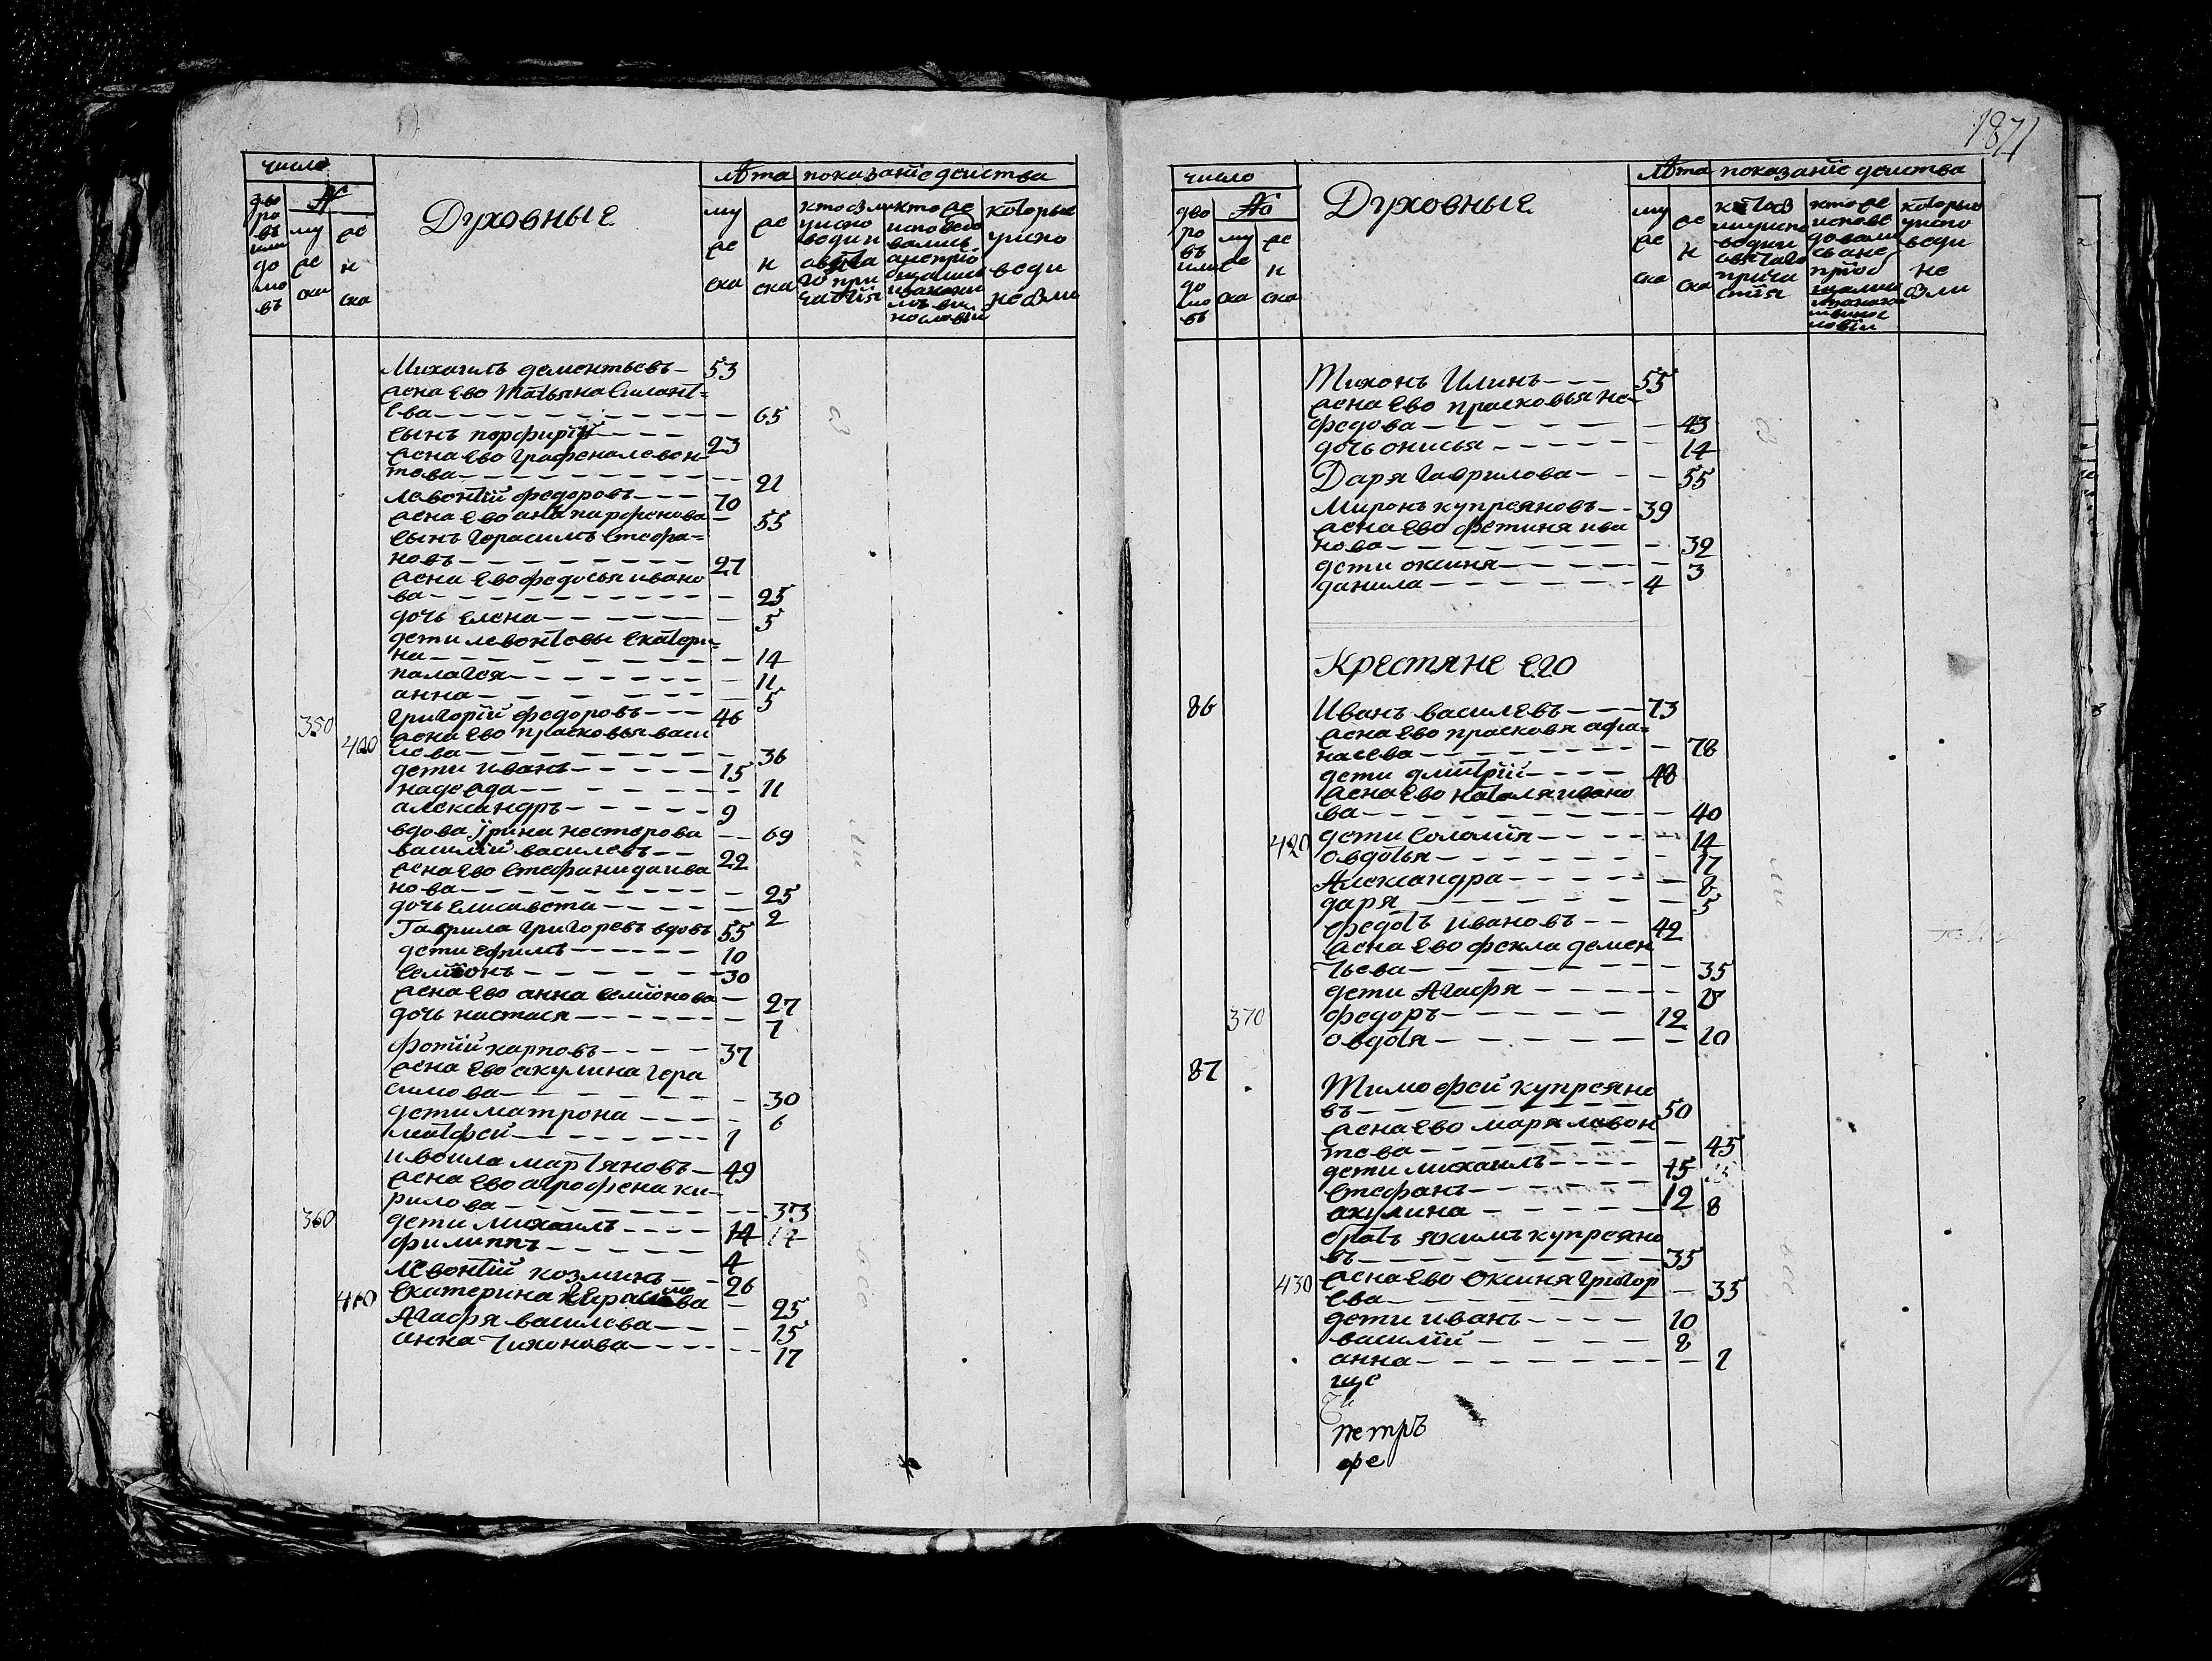 число
лѣта показание действа
дво ро въ или до мо въ
№
му же ска
же н ска
Духовные
му же ска
же н ска
кто были у испо веди и свята го при частия
кто же исповедо вались а не прио бщались и за каким винословием
которые у испо веди не были
Михаилъ дементьевъ 53
жена ево Татьяна Силант
ева 65
сынъ порфирий 23
жена ево Графена левон
това 21
левонтий федоровъ 70
жена ево анна парфенова 55
сынъ Герасимъ Стефа
новъ 27
жена ево федосья ивано
ва 25
дочь Елена 5
дети левонтовы Екатери
на 14
палагея 11
анна 5
350 григорий федоровъ 46
400 жена ево прасковья васи
лева 36
дети иванъ 15
надежда 11
александръ 9
вдова ирина нестерова 69
василий василевъ 22
жена ево Стефанида ива
нова 25
дочь Елисавета 2
Гаврила григоревъ вдовъ 55
дети Ефимъ 10
Семионъ 30
жена ево анна семионова 27
дочь настася 1
фотий карповъ 37
жена ево акулина гера
симова 30
дети матрона 6
матфей 1
ивоила мартяновъ 49
жена ево агрофена ки
рилова 33
360 дети михаилъ 14
филиппъ 4
левонтий козминъ 26
410 Екатерина Герасимова 25
Агафя василева 15
анна тихонова 17
1871
число
лѣта показание действа
дво ро въ или до мо въ
№
му же ска
же н ска
Духовные
му же ска
же н ска
кто были у испо ведии святаго прича стия
кто же испове довали сь а не приоб щались и за каким виносл овием
которые у испо веди не были
Тихонъ Илинъ 55
жена ево прасковья не
федова 43
дочь онисья 14
Даря гаврилова 55
Миронъ купреяновъ 39
жена ево фетиня ива
нова 32
дети оксиня 3
данила 4
Крестяне его
86 Иванъ василевъ 73
жена ево прасковя афа
насева 78
дети дмитрий 48
жена ево наталя ивано
ва 40
420 дети Соломия 14
овдотья 17
Александра 8
даря 5
федотъ ивановъ 42
жена ево фекла демен
тьева 35
дети Агафя 15
370 федоръ 12
овдотя 10
87
Тимофей купреяно
въ 50
жена ево маря левон
това 45
дети михаилъ 15
Стефанъ 12
акулина 8
братъ якимъ купреяно
въ 35
430 жена ево Оксиня григор
ева 35
дети иванъ 10
василий 8
анна 1
петръ
фе